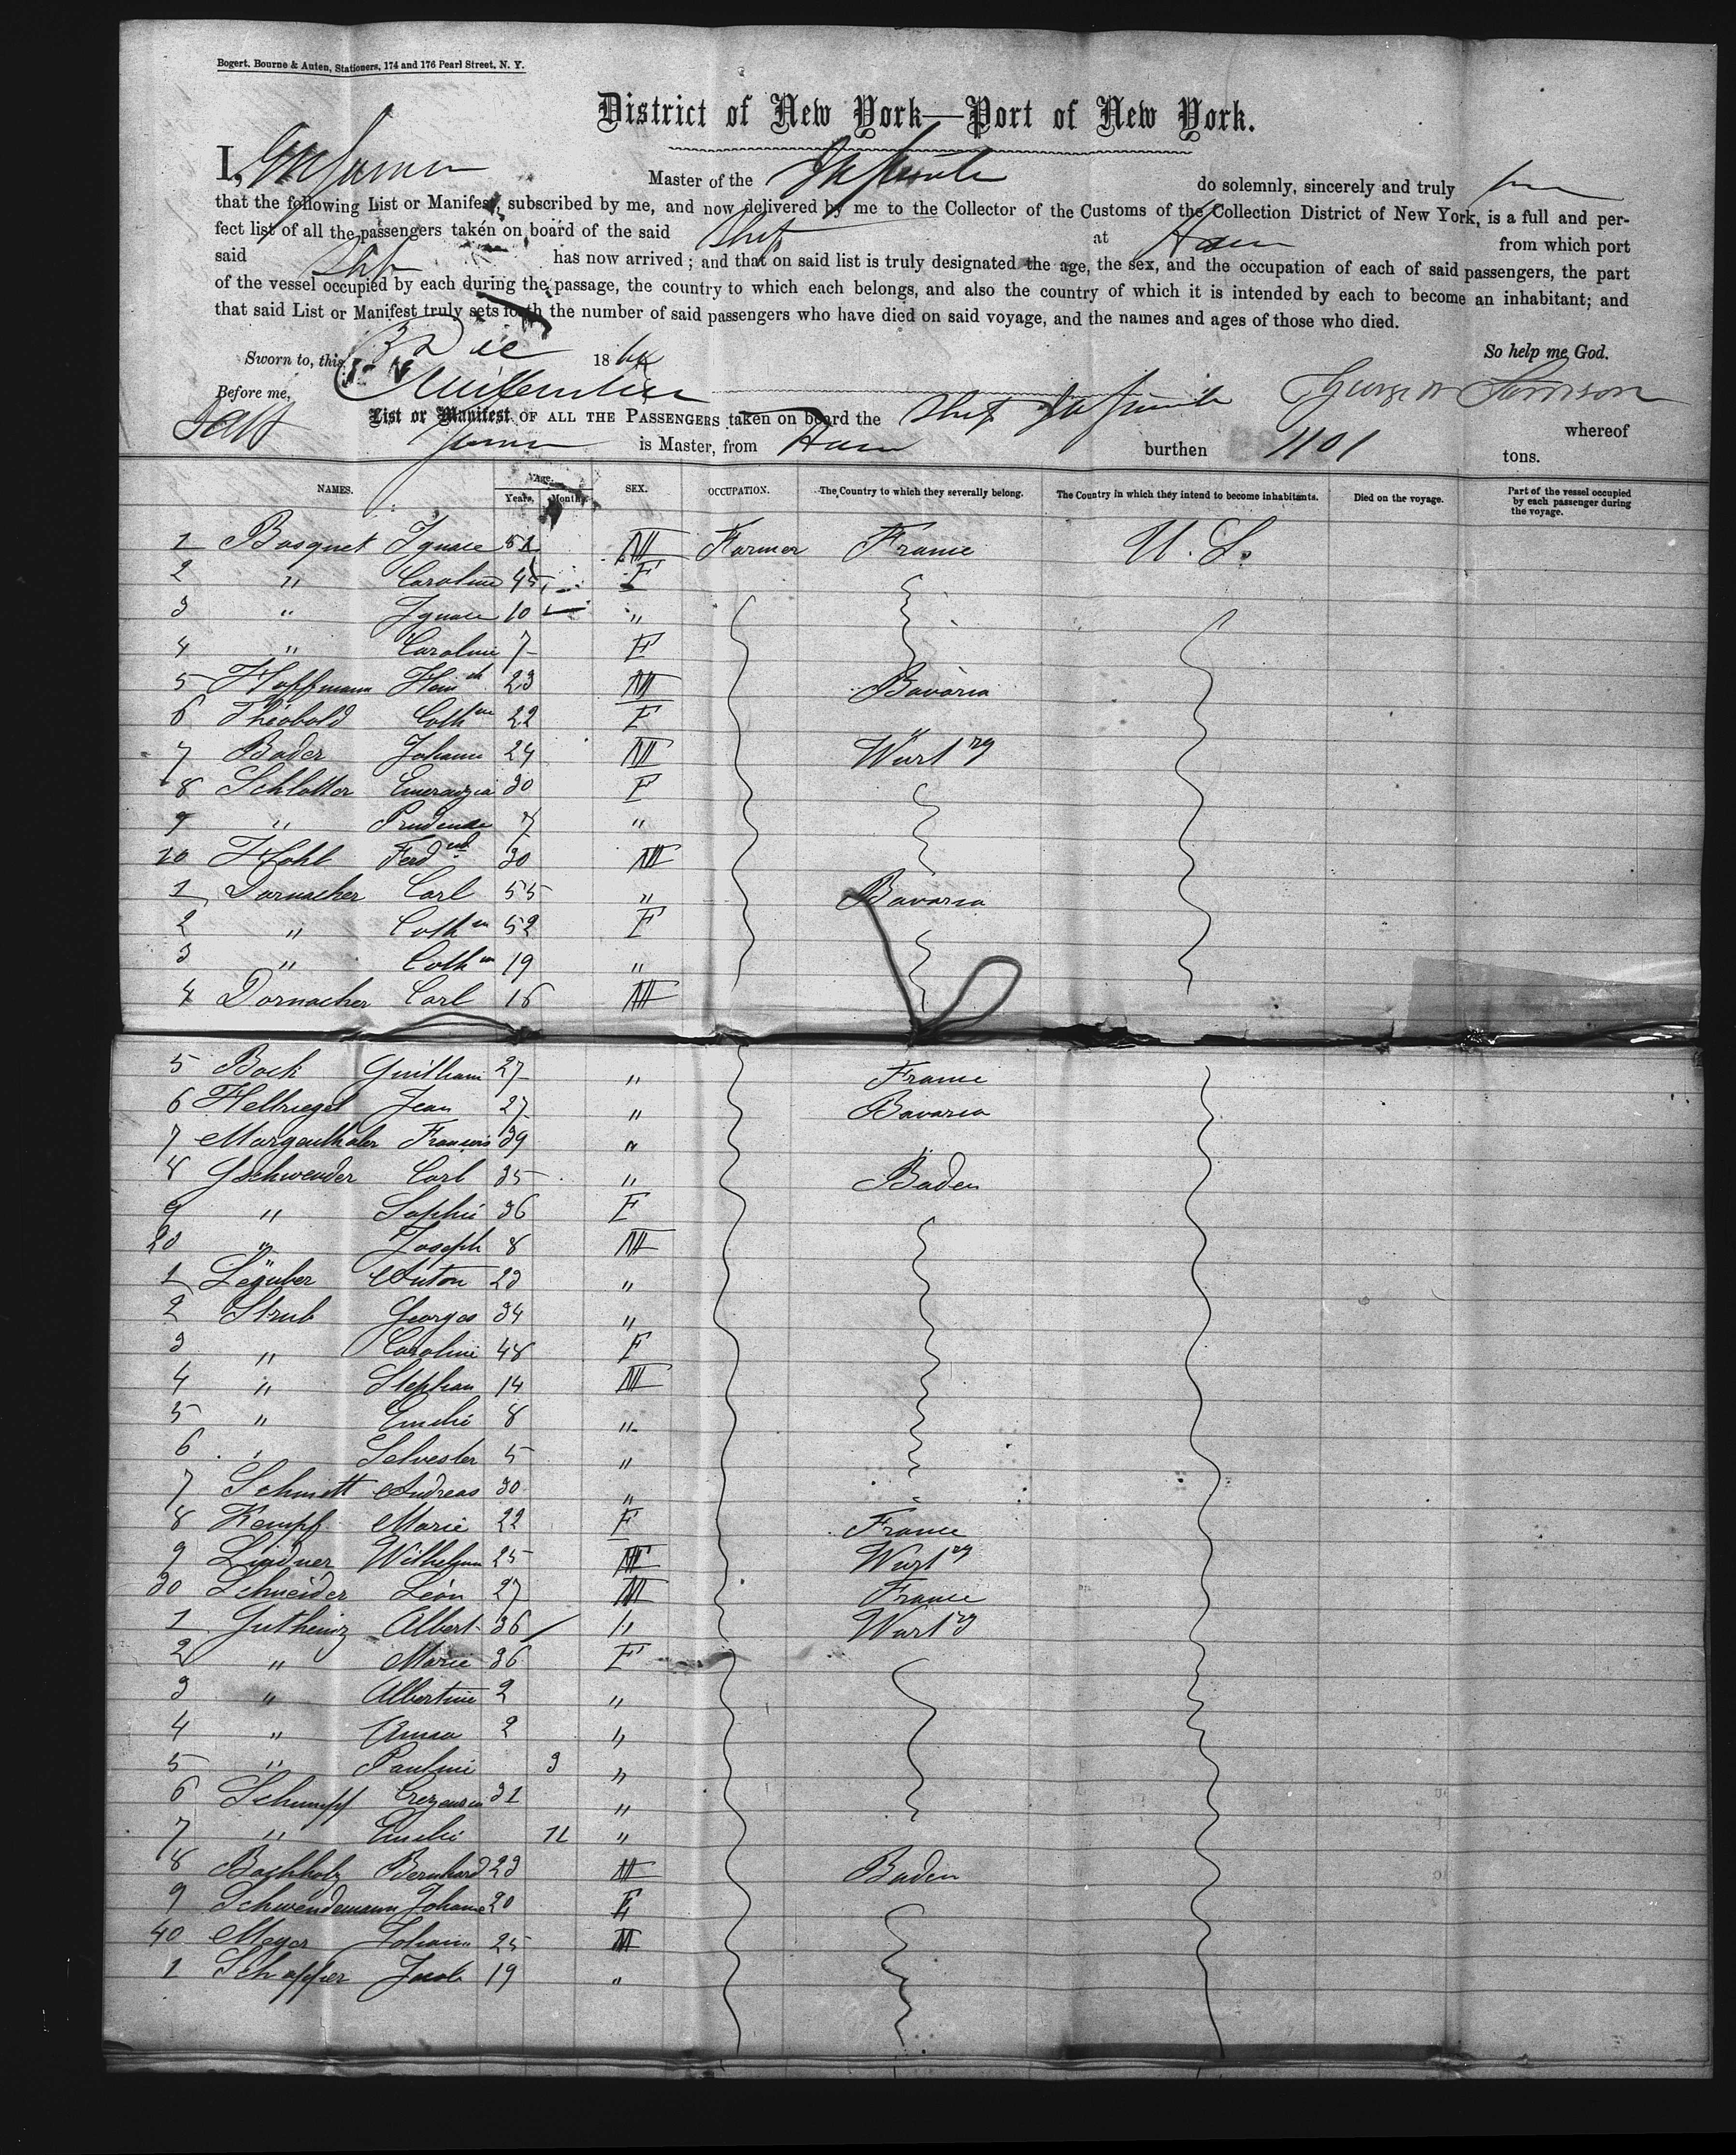 Bogert, Bourne & Auten, Stationers, 174 and 176 Pearl Street, N. Y.
District of New York—Port of New York.
I, Master of the do solemnly, sincerely and truly
that the following List or Manifest, subscribed by me, and now delivered by me to the Collector of the Customs of the Collection District of New York, is a full and per-
fect list of all the passengers taken on board of the said Ship at Havre from which port
said Ship has now arrived; and that on said list is truly designated the age, the sex, and the occupation of each of said passengers, the part
of the vessel occupied by each during the passage, the country to which each belongs, and also the country of which it is intended by each to become an inhabitant; and
that said List or Manifest truly sets forth the number of said passengers who have died on said voyage, and the names and ages of those who died.
Sworn to, this 3 Dec 186 So help me God.
Before me,
List or Manifest OF ALL THE PASSENGERS taken on board the Ship whereof
is Master, from Havre burthen 1101 tons.
NAMES. Age. Years. Months. SEX. OCCUPATION. The Country to which they severally belong. The Country in which they intend to become inhabitants. Died on the voyage. Part of the vessel occupied by each passenger during the voyage.
1 Bosquet Ignace 51 M Farmer France U. S.
2 " Caroline 45 F
3 " Ignace 10 "
4 " Caroline 7 F
5 Hoffmann Hein ch 23 M Bavaria
6 Théobold Cath ne 22 F "
7 Bader Johann 24 M Wurt rg
8 Schlotter 30 F
9 " Prudende 7 "
10 Hohl Ferd nd 30 M
1 Dornacher Carl 55 " Bavaria
2 " Cath ne 52 F
3 " Cath ne 19 "
4 Dornacher Carl 16 M
5 Bock Guilliam 27 " France
6 Helbriegel Jean 27 " Bavaria
7 Morgenthaler Francois 39 " "
8 Gschwender Carl 35 " Baden
9 " Sophie 36 F
20 " Joseph 8 M
1 Anton 23 "
2 Strub Georges 34 "
3 " Caroline 48 F
4 " Stephan 14 M
5 " Emelie 8 "
6 " Selvester 5 "
7 Schmitt Andreas 30 "
8 Kempf Marie 22 F France
9 Lindner Wilhelm 25 M Wurt rg
30 Schneider Léon 27 M France
1 Gutheinz Albert 36 " Wurt rg
2 " Marie 36 F
3 " Albertine 2 "
4 " Anna 2 "
5 " Pauline 3 "
6 Schumpf 31 "
7 " Emelie 11 "
8 Bachholz Bernhard 23 M Baden
9 Schwendemann Johanne 20 F
40 Meyer Johann 25 M
1 Schaffer Jacob 19 "